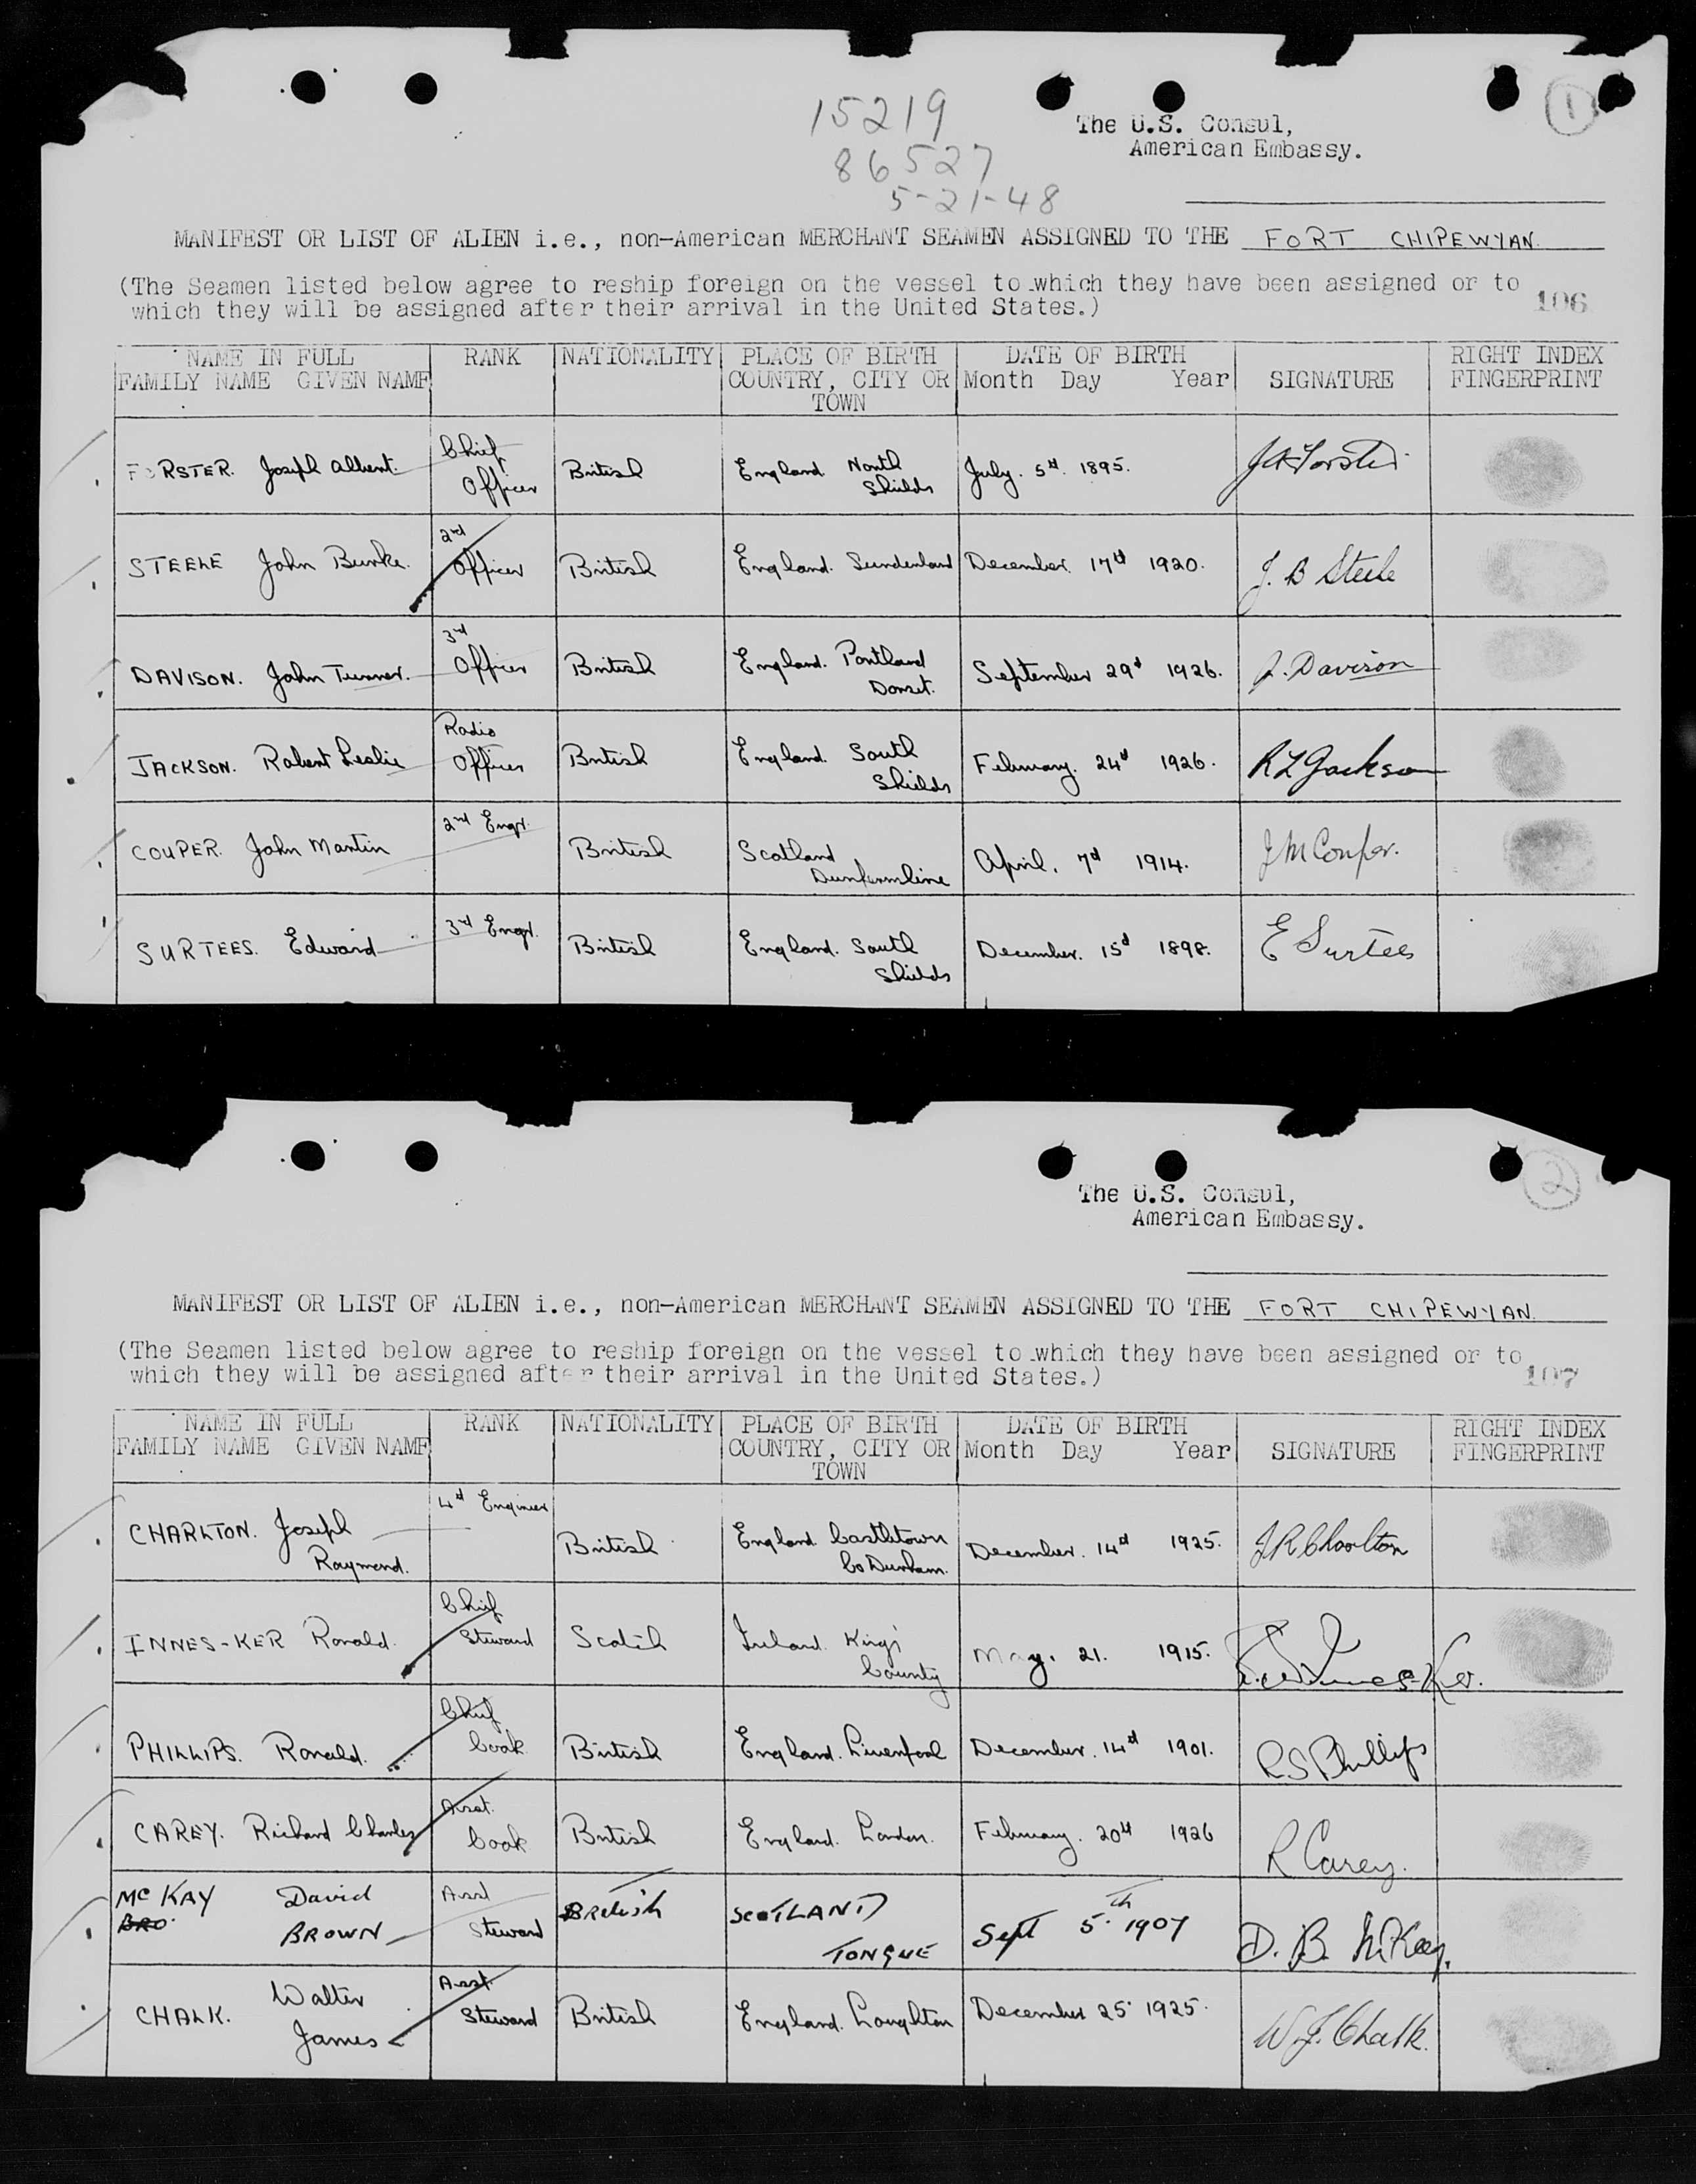 1
15219
86527
5-21-48
The U.S. Consul,
American Embassy.
MANIFEST OR LIST OF ALIEN i.e., non-American MERCHANT SEAMEN ASSIGNED TO THE FORT CHIPEWYAN.
(The Seamen listed below agree to reship foreign on the vessel to which they have been assigned or to
which they will be assigned after their arrival in the United States.)
106
NAME IN FULL RANK NATIONALITY PLACE OF BIRTH DATE OF BIRTH RIGHT INDEX
FAMILY NAME GIVEN NAME COUNTRY, CITY OR Month Day Year SIGNATURE FINGERPRINT
TOWN
FORSTER. Joseph Albert. Chief Officer British England North Shields July. 5th 1895. J A Forster
STEELE John Burke. 2nd Officer British England. Sunderland December. 17th 1920. J. B Steele
DAVISON. John Turner. 3rd Officer British England. Portland Dorset. September 29th 1926. J. Davison
JACKSON. Robert Leslie Radio Officer British England. South Shields February. 24th 1926. R L Jackson
COUPER. John Martin 2nd Engr. British Scotland Dunfermline April. 7th 1914. J M Couper.
SURTEES. Edward 3rd Engr. British England. South Shields December. 15th 1898. E Surtees
2
The U.S. Consul,
American Embassy.
MANIFEST OR LIST OF ALIEN i.e., non-American MERCHANT SEAMEN ASSIGNED TO THE FORT CHIPEWYAN.
(The Seamen listed below agree to reship foreign on the vessel to which they have been assigned or to
which they will be assigned after their arrival in the United States.)
107
NAME IN FULL RANK NATIONALITY PLACE OF BIRTH DATE OF BIRTH RIGHT INDEX
FAMILY NAME GIVEN NAME COUNTRY, CITY OR Month Day Year SIGNATURE FINGERPRINT
TOWN
CHARLTON. Joseph Raymond. 4th Engineer British England Castletown Co Durham. December. 14th 1925. J R Charlton
INNES-KER Ronald. Chief Steward Scotch Ireland. Kings County May. 21. 1915. Innes-Ker.
PHILLIPS. Ronald. Chief Cook British England. Liverpool December. 14th 1901. R S Phillips
CAREY. Richard Charles Asst. Cook British England. London. February. 20th 1926 R Carey.
Mc KAY BRO. David BROWN Asst Steward British SCOTLAND TONGUE Sept 5.th 1907 D. B. McKay.
CHALK. Walter James Asst. Steward British England. Loughton December 25. 1925. W. J. Chalk.